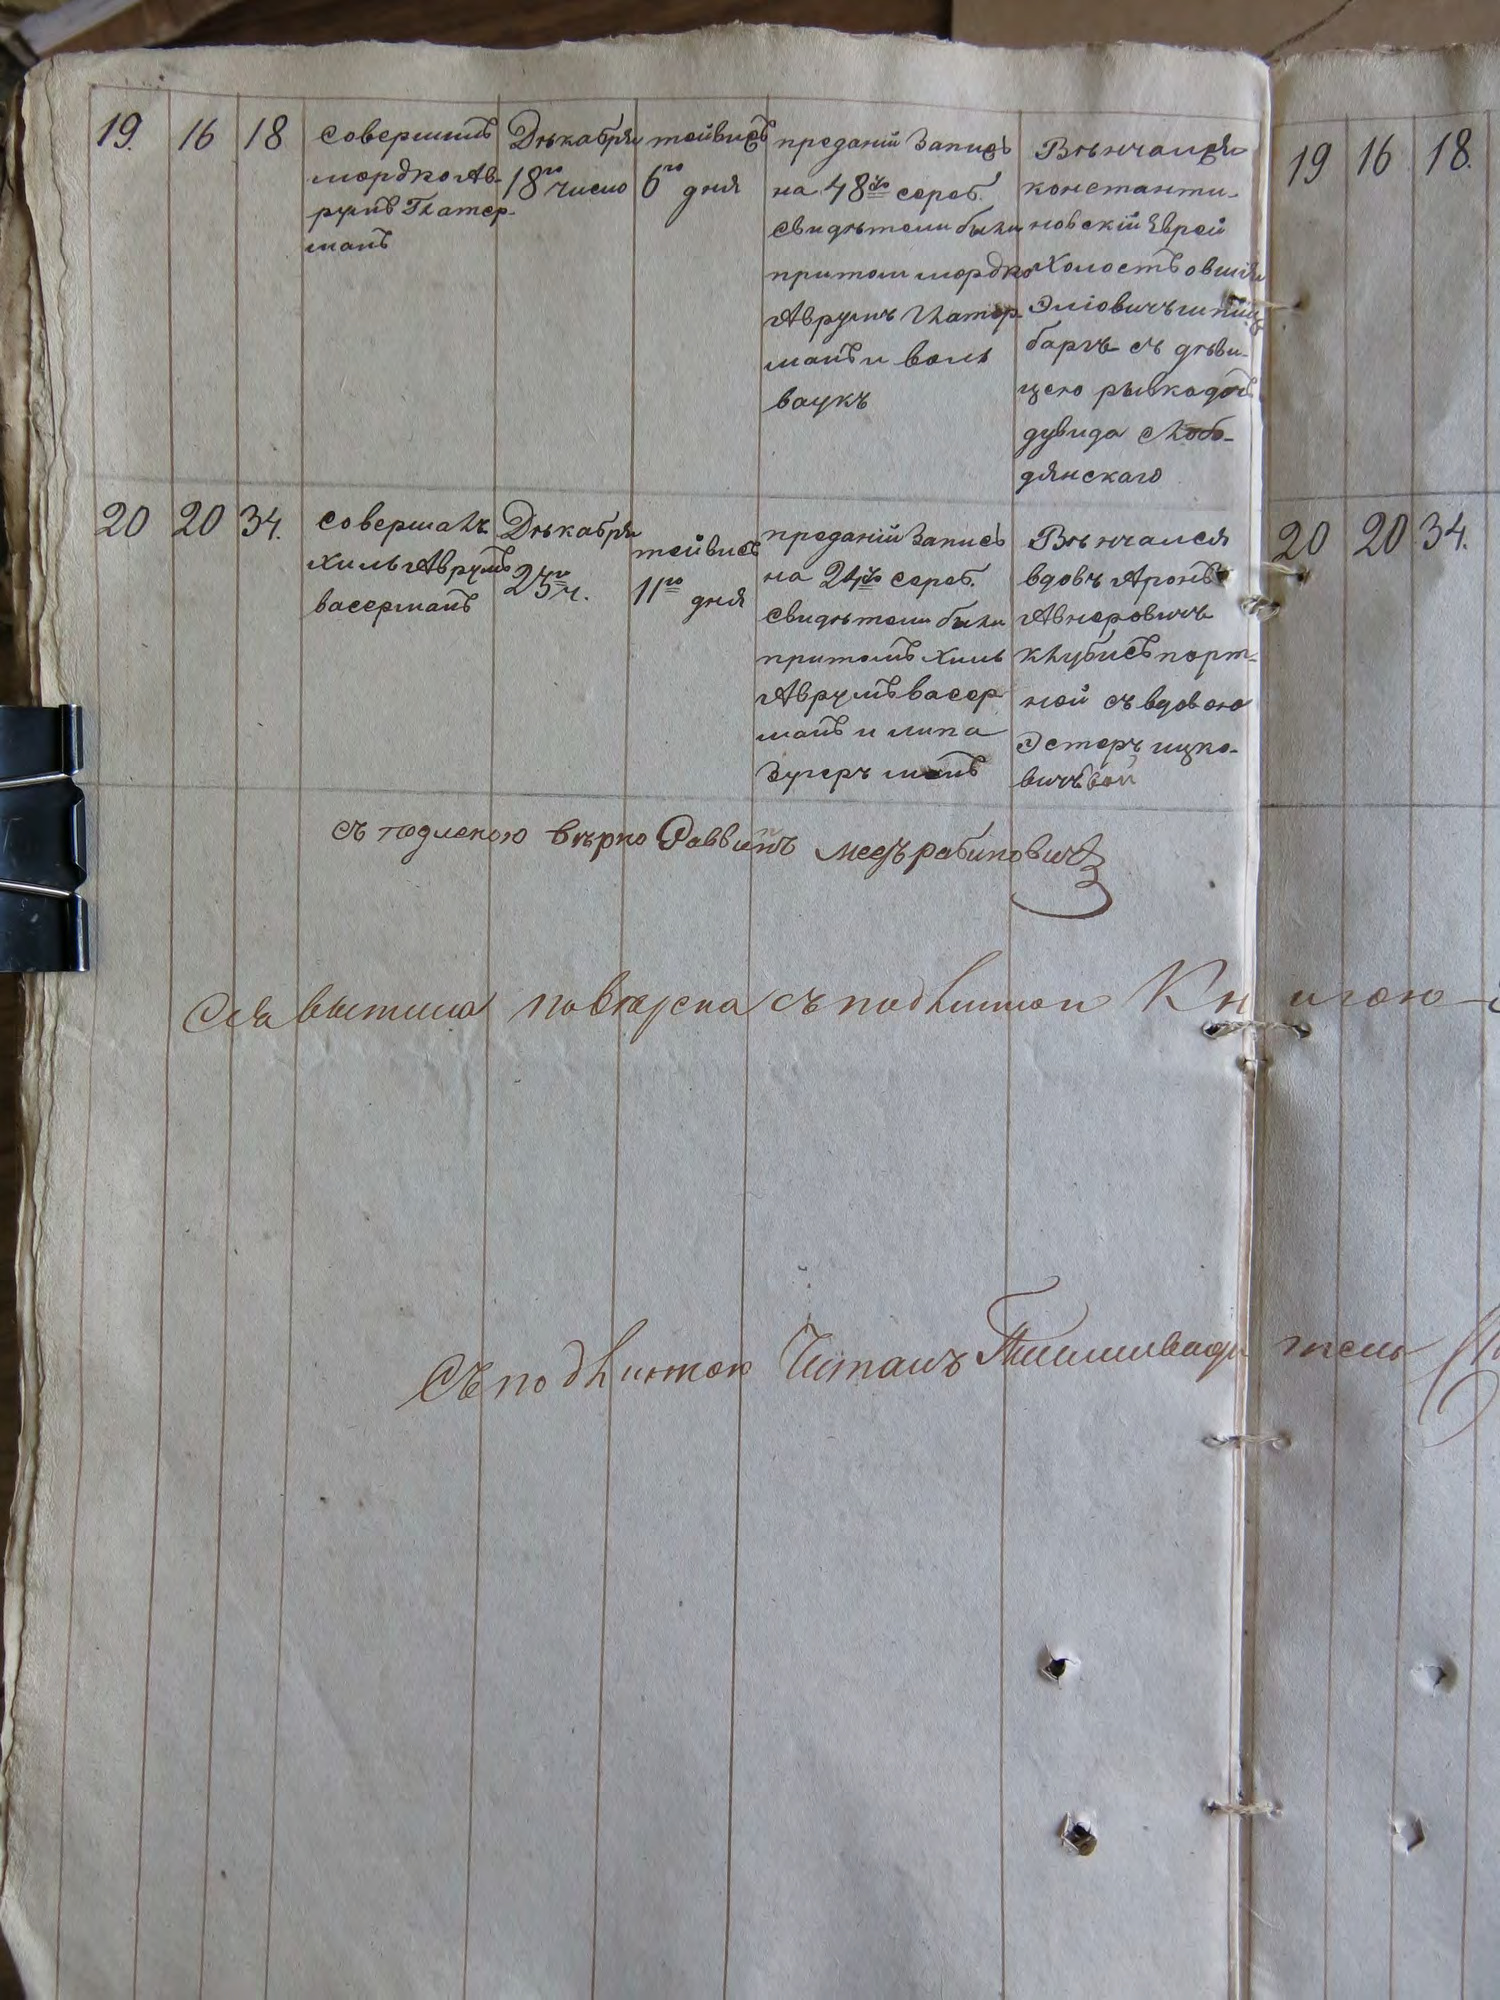 19. 16 18
совершилъ
мордко Ав-
румъ Гlатер-
манъ
Дѣкабря
18го число
тейвисъ
6го дня
преданій Запись
на 48 че сереб.
свидѣтели были
притом мордко
Аврумъ Глатер
манъ и вель
ваукъ
Вѣнчался
константи-
новскій Еврей
Холостъ овшія
Эліовичъ шпиц
баргъ съ дѣви-
цею рывка доч
дувида Слобо-
дянскаго
20 20 34.
совершалъ
хиль Аврумъ
васерманъ
Дѣкабря
23го ч.
тейвисъ
11го дня
преданій Запись
на 24 че сереб.
свидѣтели были
притомъ Хиль
Аврумъ васер
манъ и липа
Зугеръ манъ
Вѣнчался
вдовъ Аронъ
Авнеровичъ
клубисъ порт-
ной съ вдовою
Эстеръ ицко-
вичъвой
съ подленою вѣрно Раввинъ мееръ рабиновичъ
повѣрена съ подлинною Книгою
Съ подлинною Читалъ
19 16 18.
20 20 34.